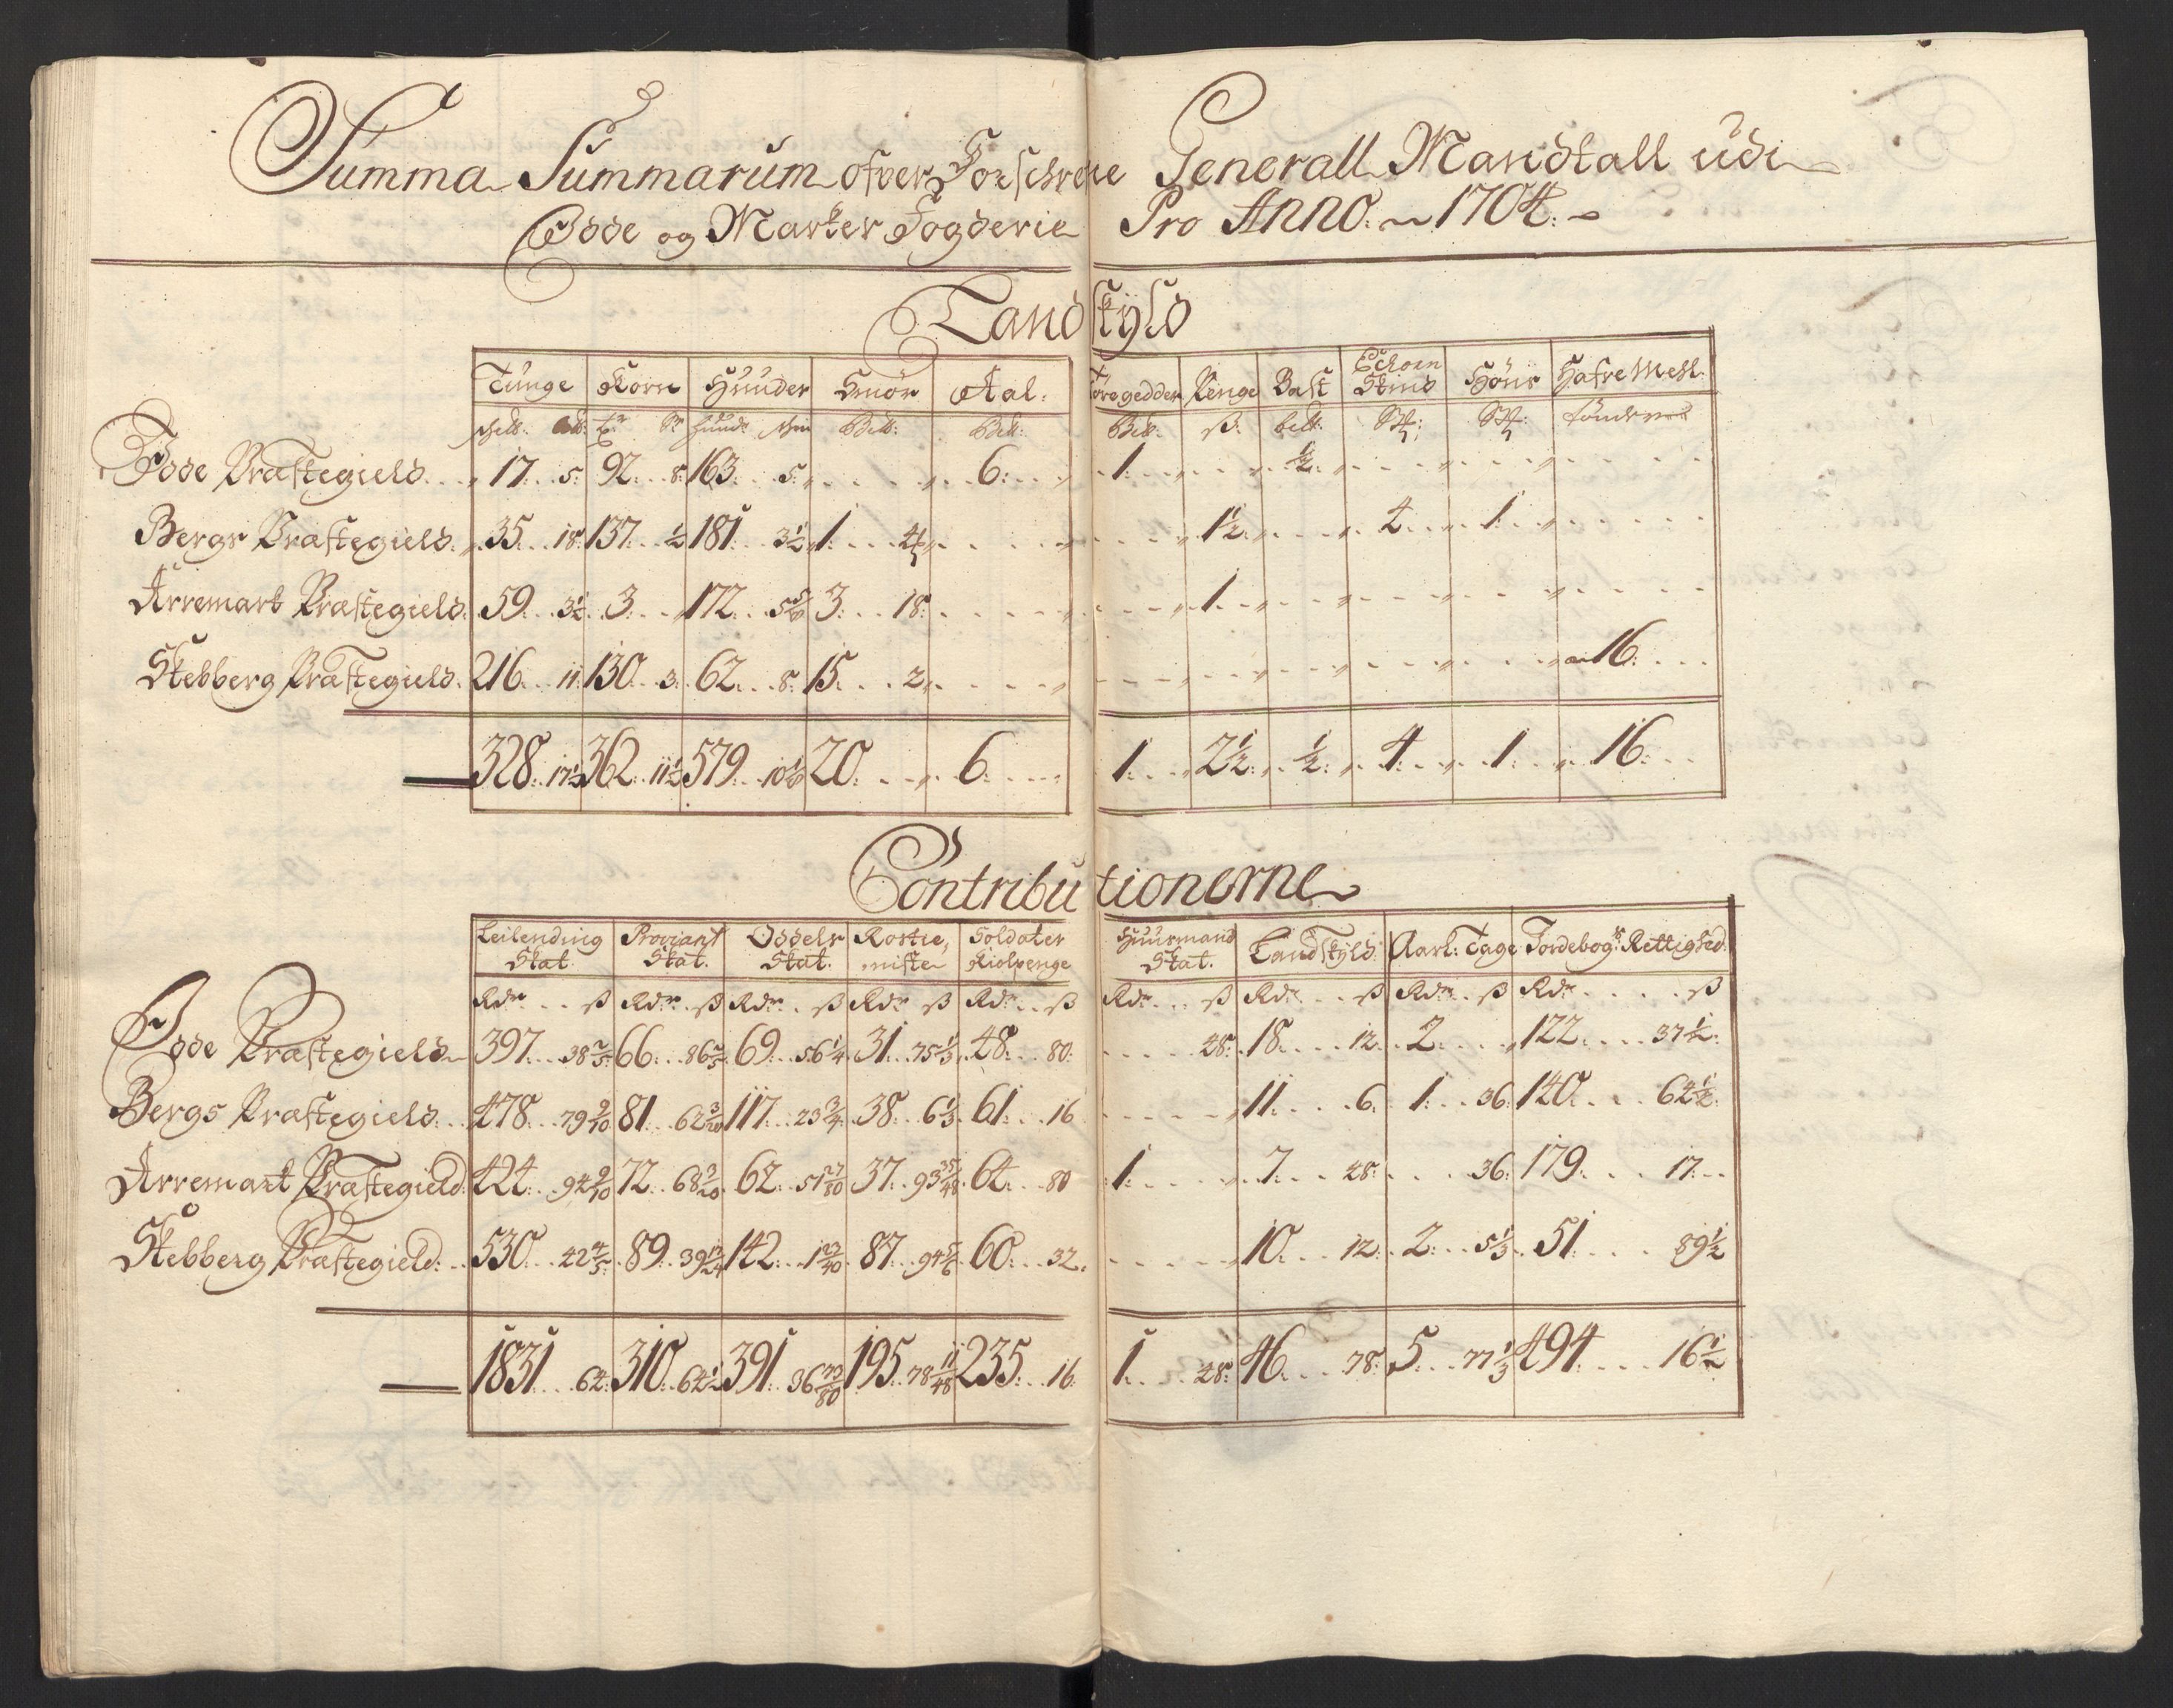 Summa Summarum ofver Forschrefne Generall Mandtall udi
Idde og Marker Fogderie Pro Anno 1704.
Landskyld
Tunge Korn Huuder Smør Aal. Tøregedder Penge Bast Echorn Skind Høns Hafre Mehl.
Hude Bell. Bell: Bell: ß. bell. Stk: Stk: tønder
Idde Præstegield. 17. 5. 92. 8. 163. 5. 6. 1. ½.
Bergs Præstegield. 35. 18. 137. ½ 181. 3½ 1. 4 1½ 4. 1.
Arremark Præstegield. 59. 3½. 3. 172. 5 3. 18. 1.
Skebberg Præstegield. 216. 11. 130. 3. 62. 8. 15. 2. 16.
328. 17½ 362. 11½ 579. 10 20. 6. 1. 2½. ½. 4. 1. 16.
Contributionerne
Leilending Skat. Proviant Skat. Oddels Skat. Rostieniste Soldater Kiolpenge Huusmand Skat. Landskyld. Aarl: Tage Jordebogs Rettighed.
Rdr ß Rdr ß Rdr ß Rdr ß Rdr ß Rdr ß Rdr ß Rdr ß Rdr ß
Idde Præstegield 397. 38⅖. 66. 86⅖. 69. 56¼ 31. 75⅓. 48. 80. 48. 18. 12. 2. 122. 37½.
Bergs Præstegield. 478. 79 9/10 81. 62 3/20 117. 23¾. 38. 6⅓. 61. 16 11. 6. 1. 36. 140. 64½.
Arremark Præstegield. 424. 94 9/10 72. 68 3/20. 62. 51 27/80 37. 93 35/48. 64. 80 1. 7. 48. 36. 179. 17.
Skebberg Præstegield. 530. 42⅘. 89. 39 142. 1 23/40. 87. 94⅚. 60. 32. 10. 12. 2. 5⅓. 51. 89½
1831. 64. 310. 64½ 391. 36 73/80 195. 78 11/48 235. 16. 1. 48. 46. 78. 5. 77⅓ 494. 16½